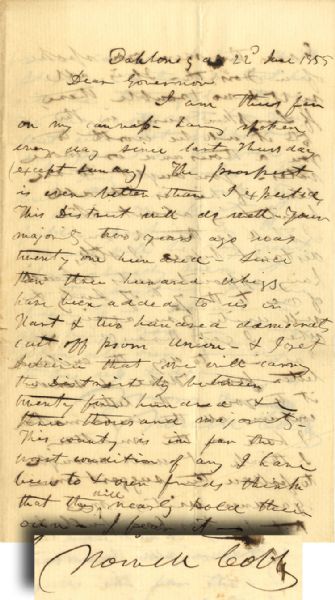 Dahlonega 22d June 1855
Dear Governor
I am thus far
on my canvass - having spoken
every day since last Thursday
(except Sunday) The prospect
is even better than I expected
This District will do well - Your
majority two years ago was
twenty one hundred - Since
then three hundred whigs
have been added to us in
Hart & two hundred democrats
cut off from Union - & I yet
believe that we will carry
the District by between
twenty five hundred &
three thousand majority -
This county is in far the
worst condition of any I have
been to & our friends think
that they will nearly hold their
own - I
Howell Cobb